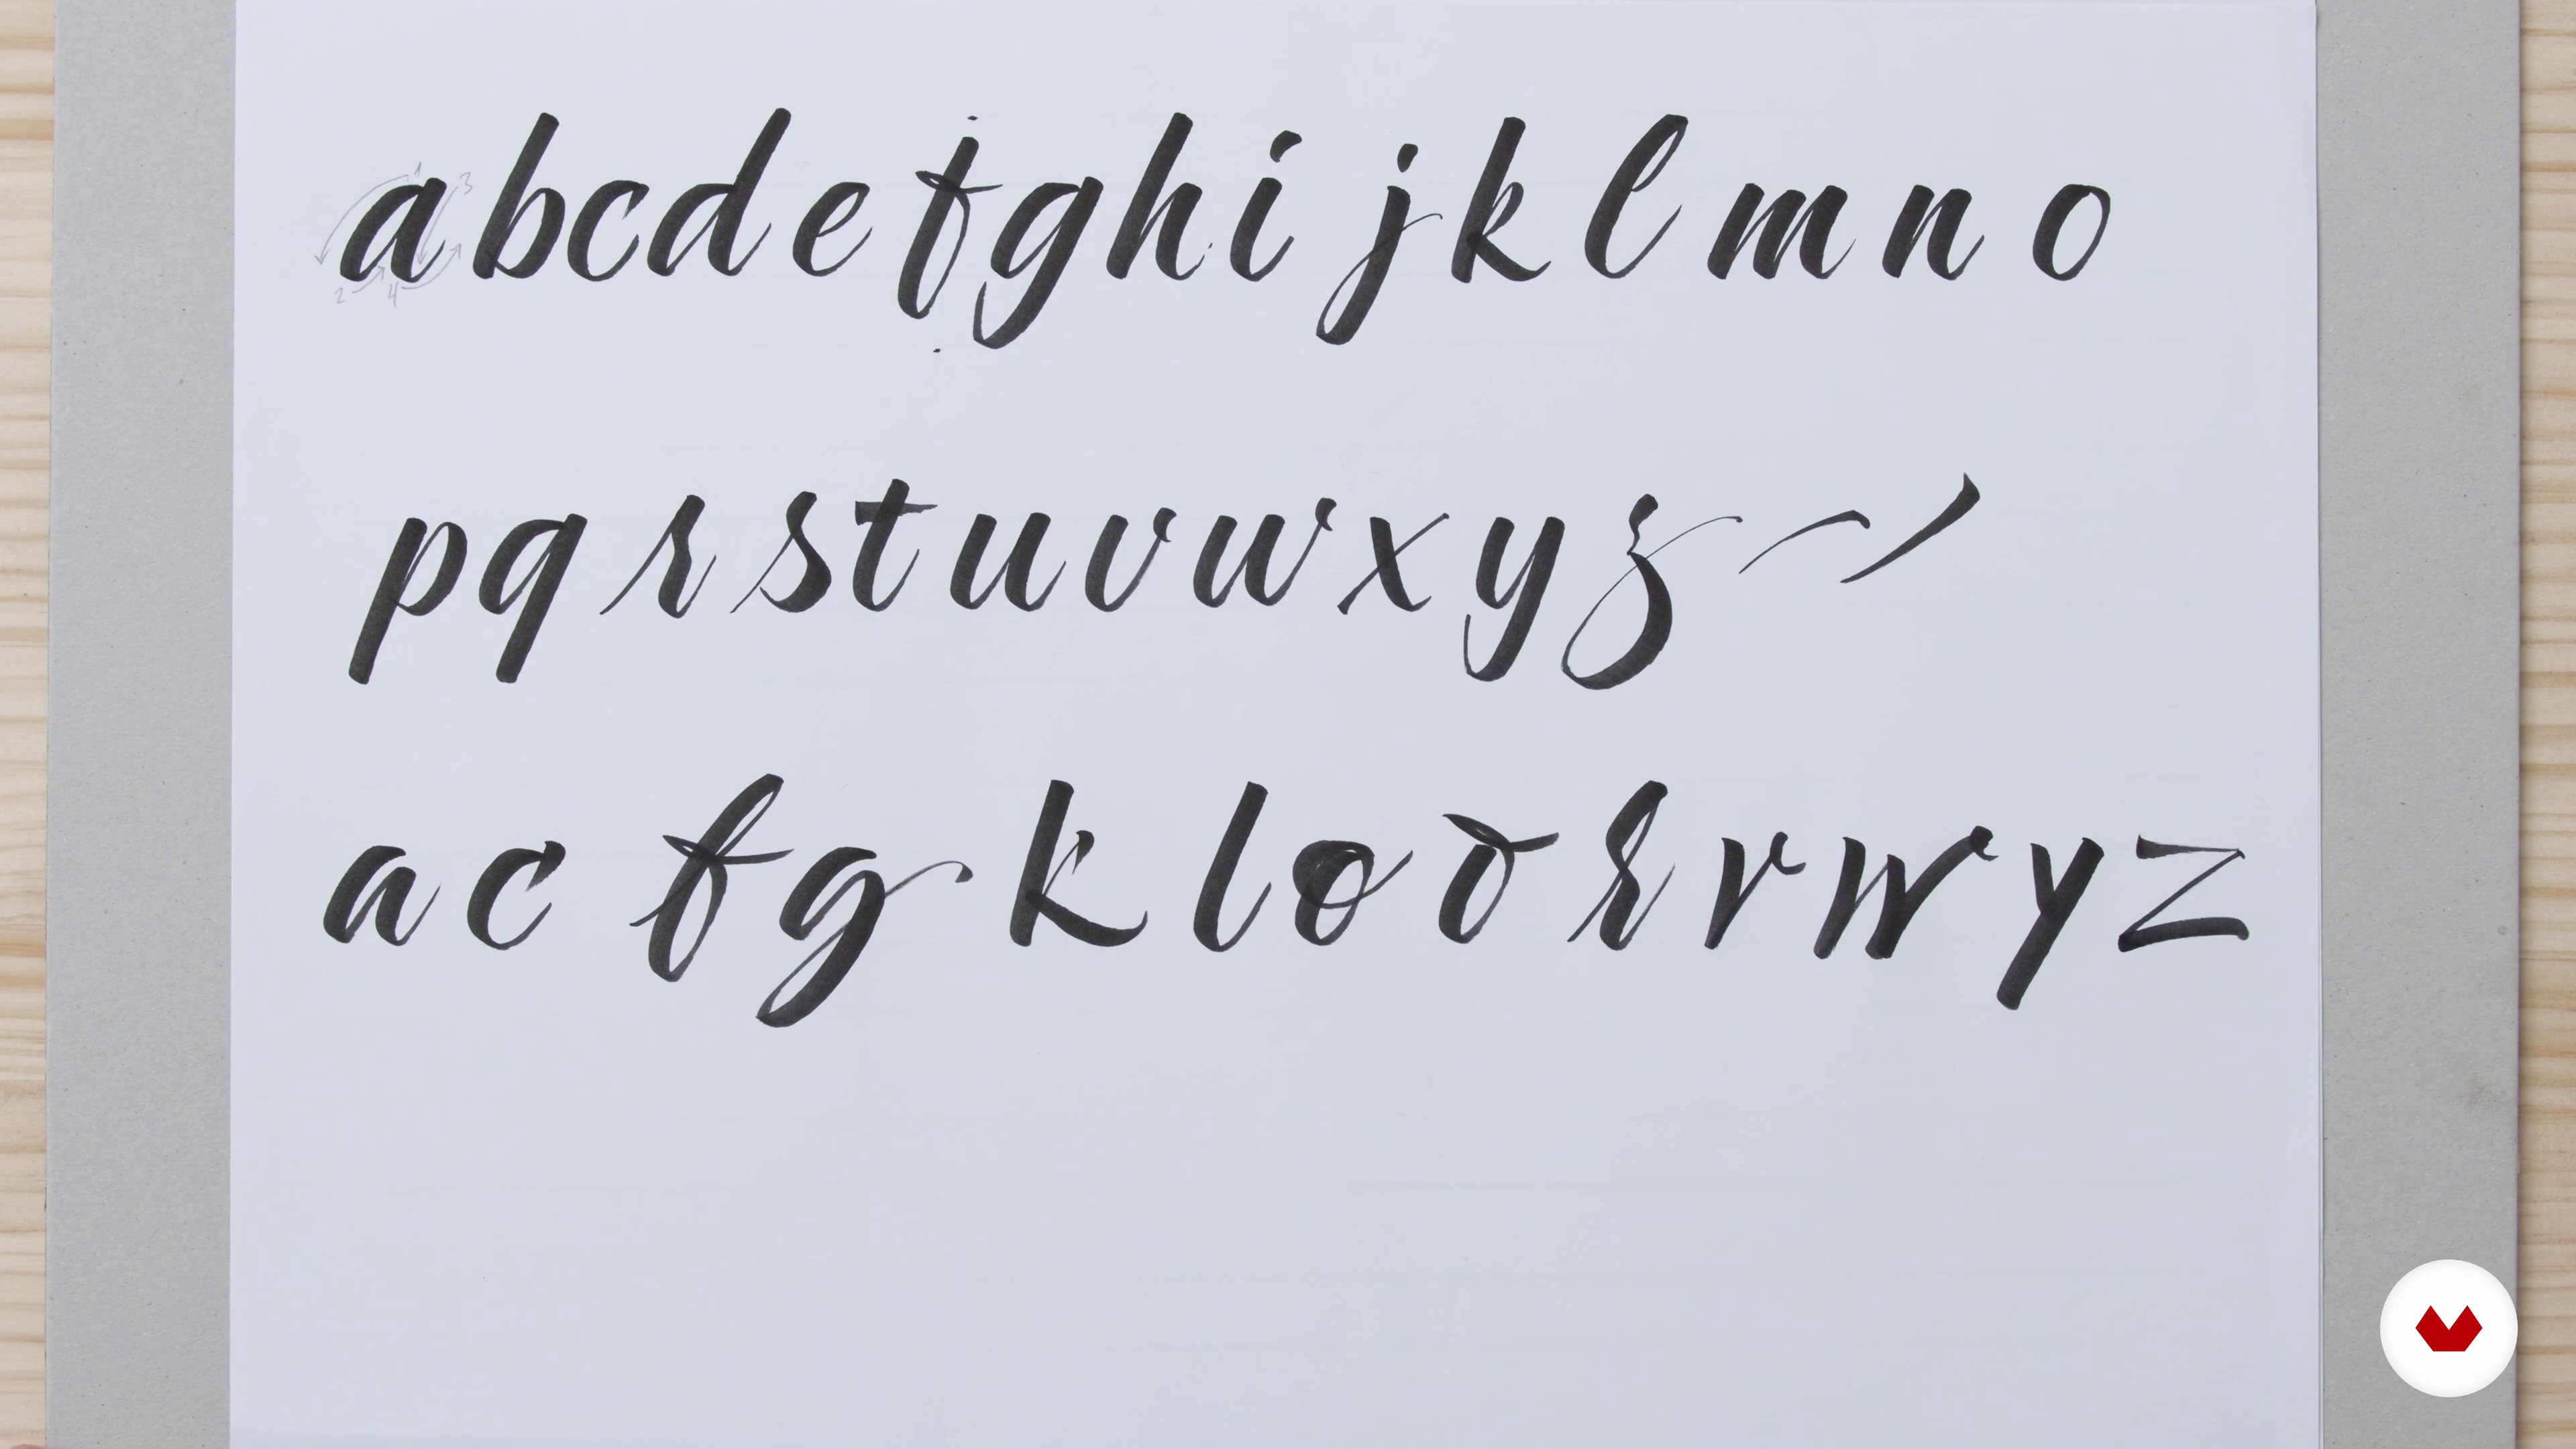 a b c d e f g h i j k l m n o
p q r s t u v w x y z
a c f g k l o o r v w y z
1 3
2 4